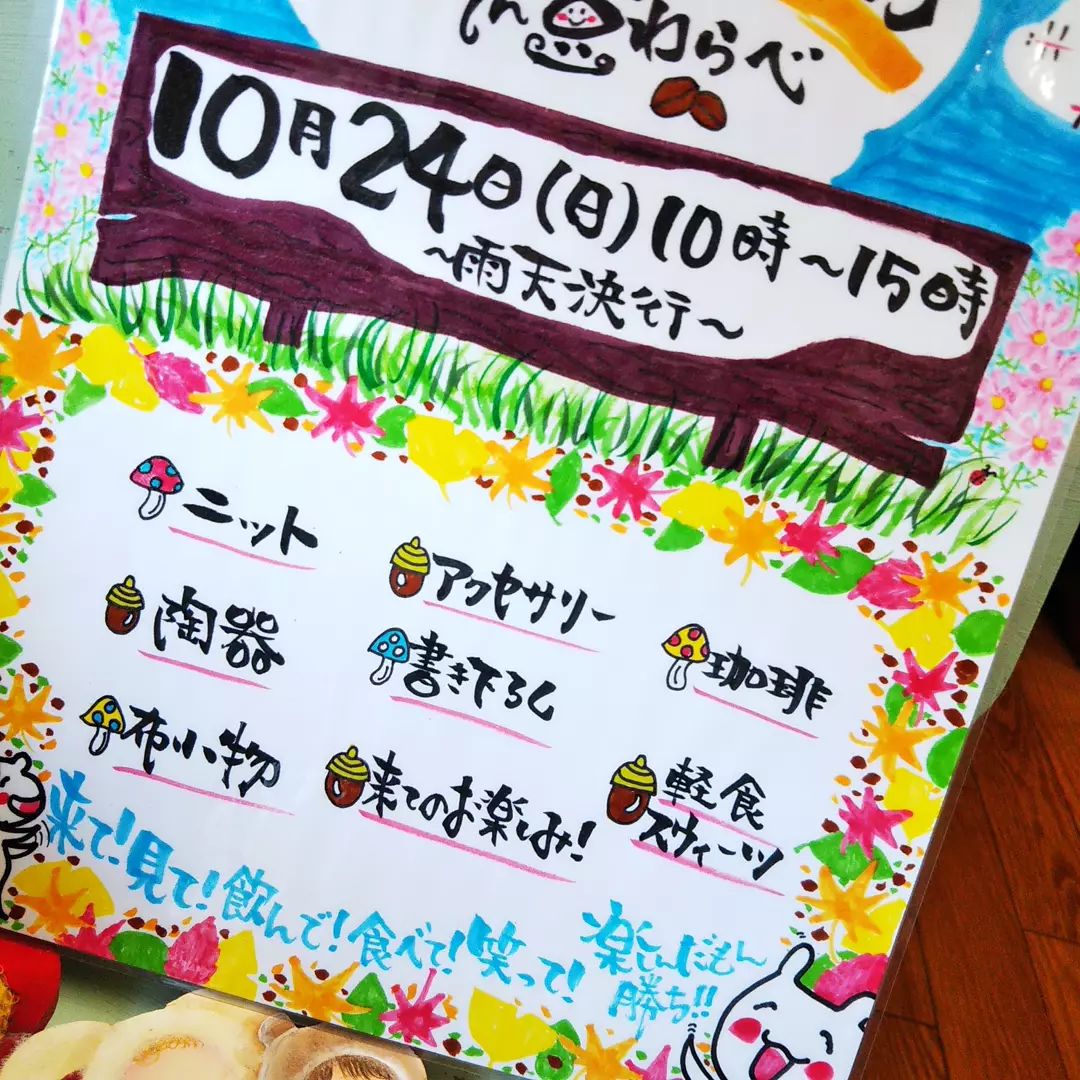 わらべ
10月24日(日)10時～15時
～雨天決行～
ニット
アクセサリー
珈琲
陶器
書き下ろし
布小物
来てのお楽しみ!
軽食
スウィーツ
来て!見て!飲んで!食べて!笑って!
楽しんだもん
勝ち!!